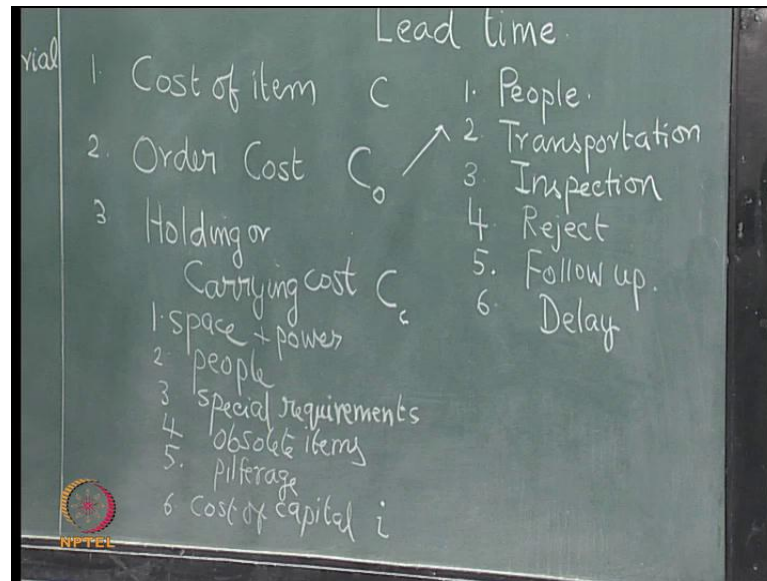 rial
Lead time.
1. Cost of item C
2. Order Cost C₀
3 Holding or
Carrying cost C꜀
1. space + power
2. people
3 special requirements
4 obsolete items
5. pilferage
6 Cost of capital i
1. People.
2. Transportation
3 Inspection
4 Reject
5. Follow up.
6 Delay
NPTEL